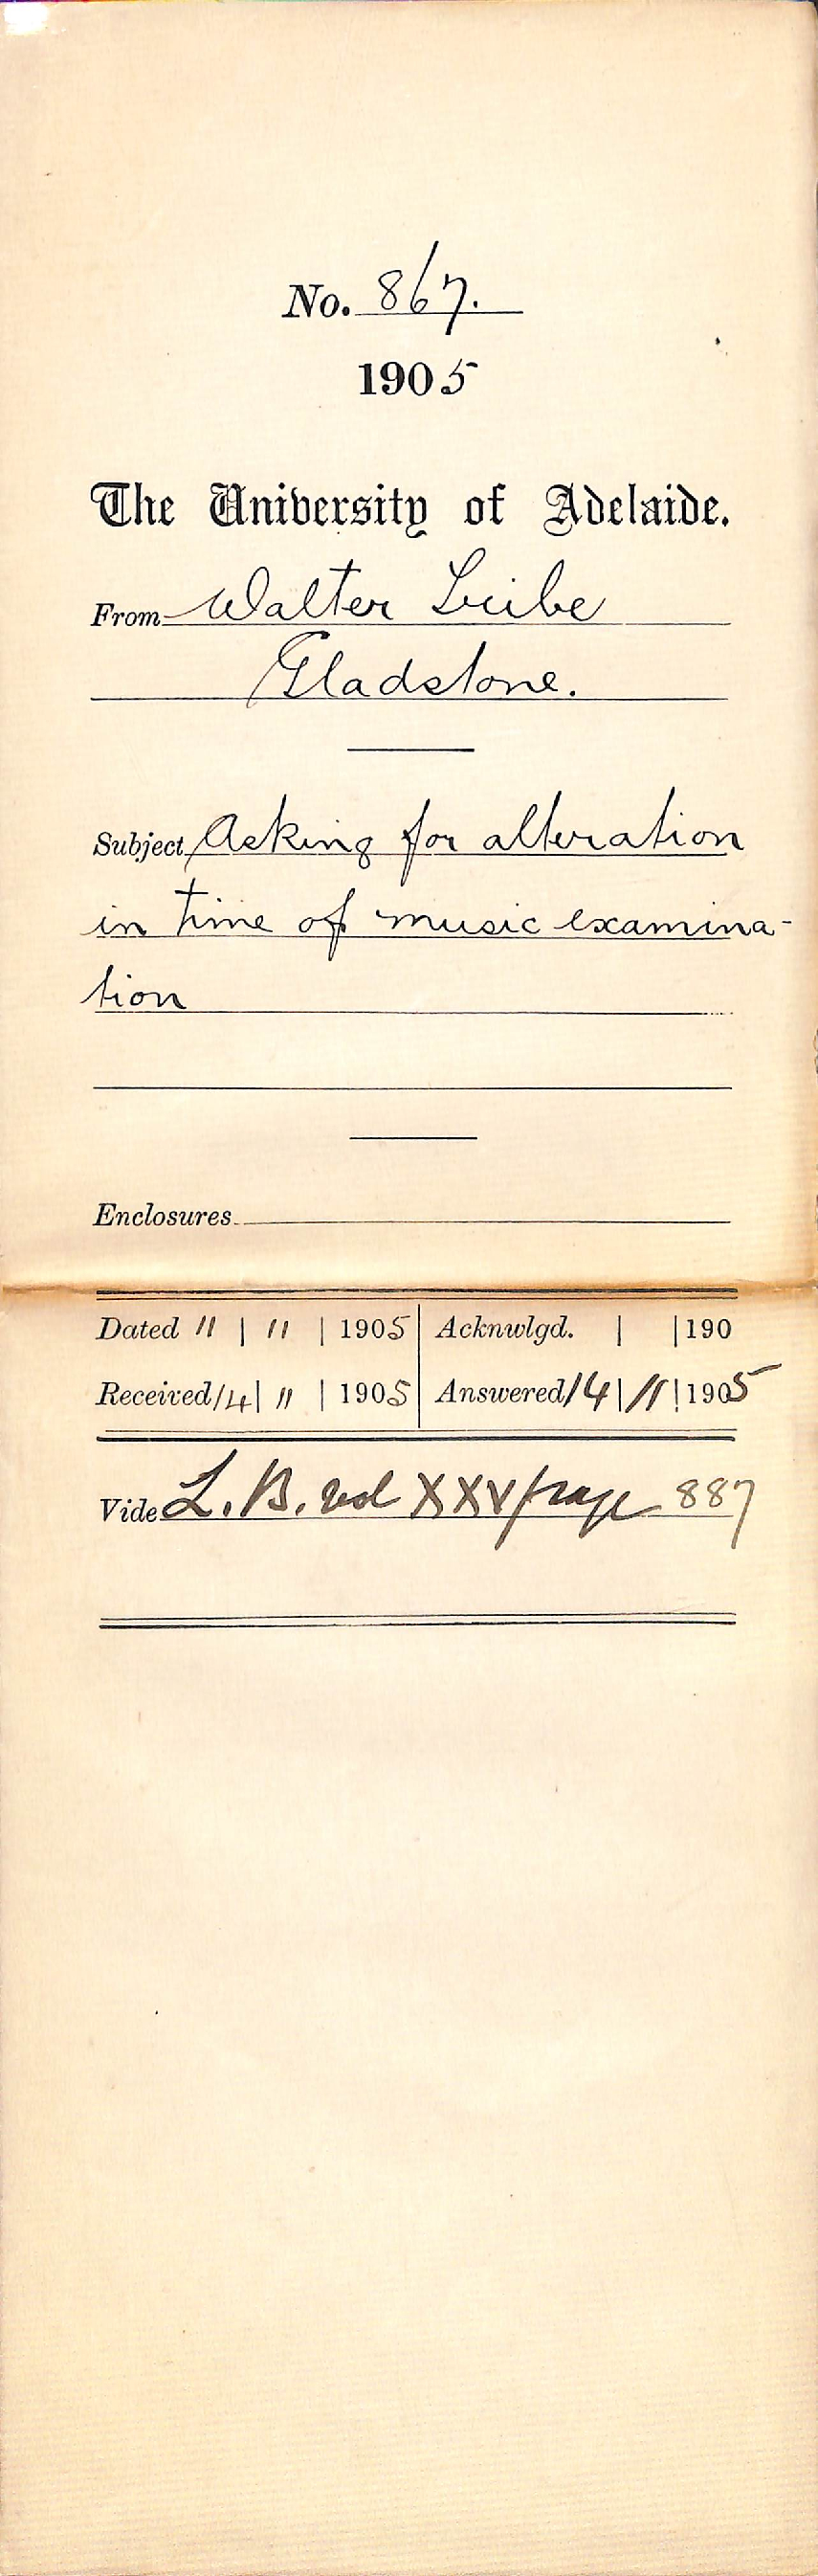 No. 867.
1905
The University of Adelaide.
From Walter
Gladstone.
Subject Asking for alteration
in time of music examina-
tion
Enclosures
Dated 11 | 11 | 1905 | Acknwlgd. | | 190
Received 14 | 11 | 1905 | Answered 14 | 11 | 1905
Vide L. B. vol XXV page 887